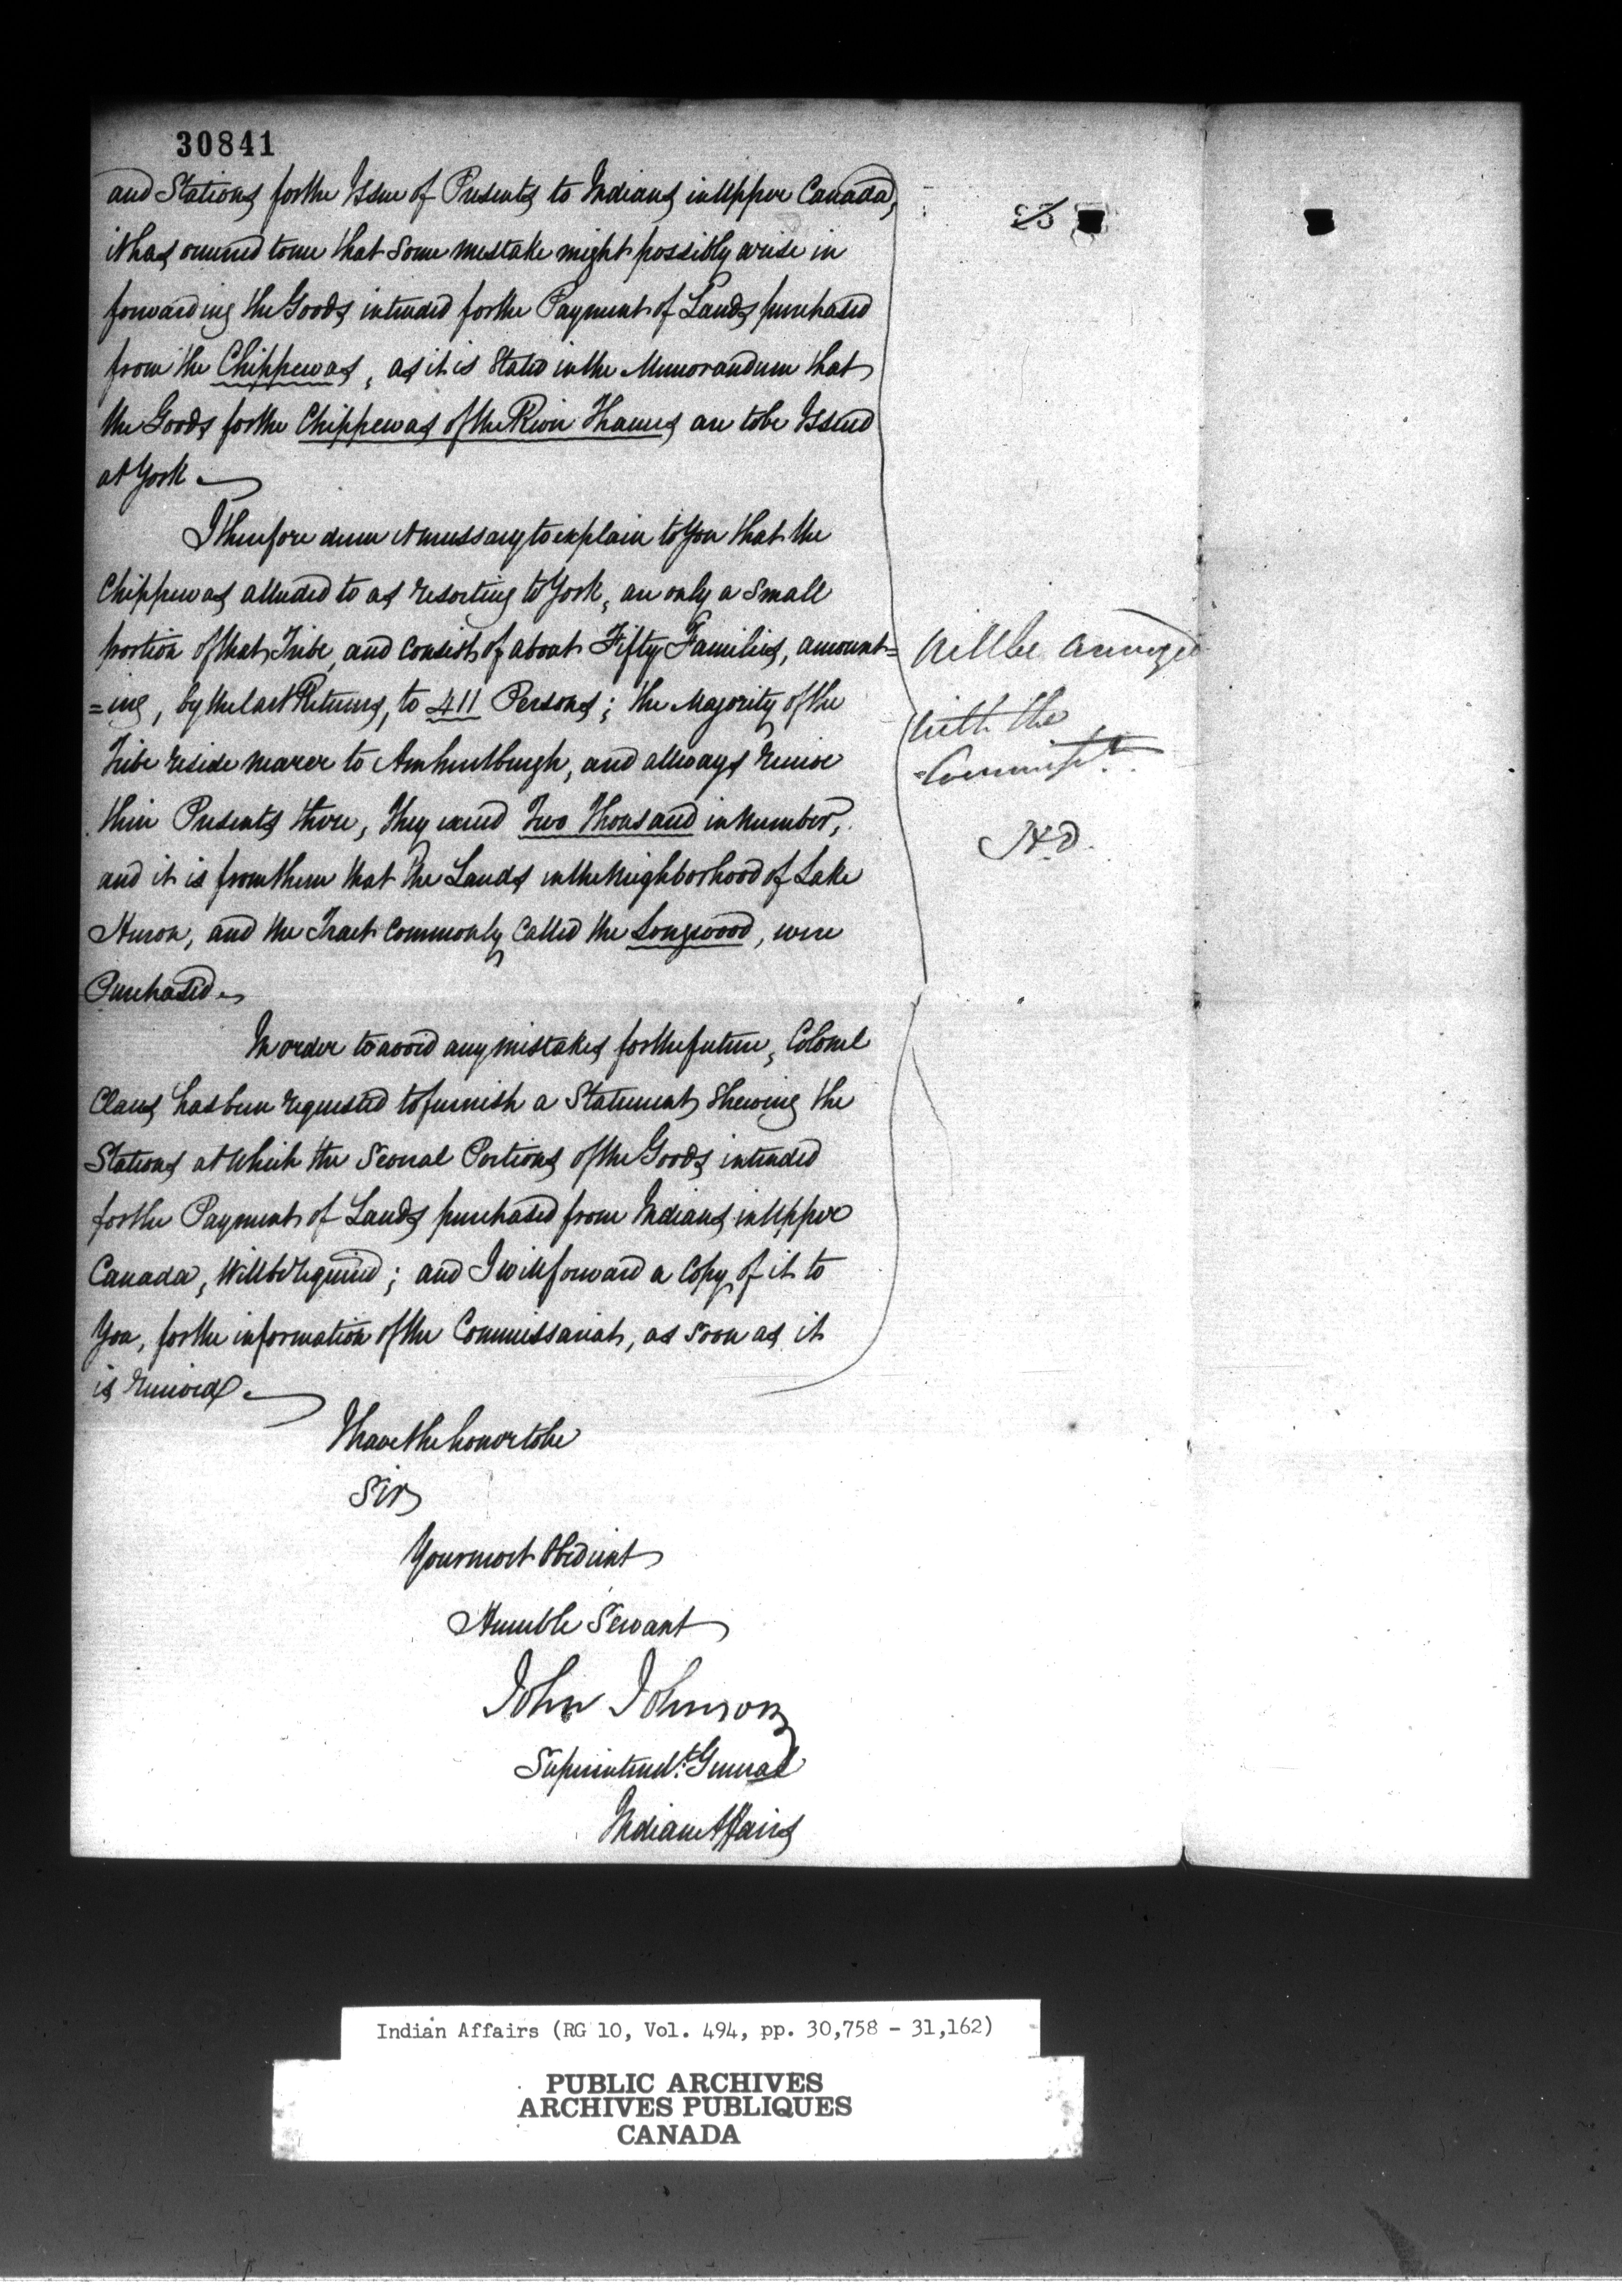 30841
and Stations for the Issue of Presents to Indians in Upper Canada,
it has occurred to me that some mistake might possibly arise in
forwarding the Goods intended for the Payment of Lands purchased
from the Chippewas, as it is stated in the Memorandum that
the Goods for the Chippewas of the River Thames are to be Issued
at York.
I therefore deem it necessary to explain to You that the
Chippewas alluded to as resorting to York, are only a Small
portion of that Tribe, and consist of about Fifty Families, amount=
=ing, by the last Returns, to 411 Persons; the Majority of the
Tribe reside nearer to Amherstburgh, and allways receive
their Presents there, They exceed Two Thousand in Number,
and it is from them that the Lands in the Neighborhood of Lake
Huron, and the Tract Commonly Called the Longwood, were
Purchased.
In order to avoid any mistakes for the future, Colonel
Claus has been requested to furnish a Statement, Shewing the
Stations at Which the Several Portions of the Goods, intended
for the Payment of Lands purchased from Indians in Upper
Canada, Will be required; and I will forward a Copy of it to
You, for the information of the Commissariat, as soon as it
is received.
I have the honor to be
Sir
Your most Obedient
Humble Servant
John Johnson
Superintend.t General
Indian Affairs
Will be arranged
with the
Commiss.t
H.D.
Indian Affairs (RG 10, Vol. 494, pp. 30,758 - 31,162)
PUBLIC ARCHIVES
ARCHIVES PUBLIQUES
CANADA